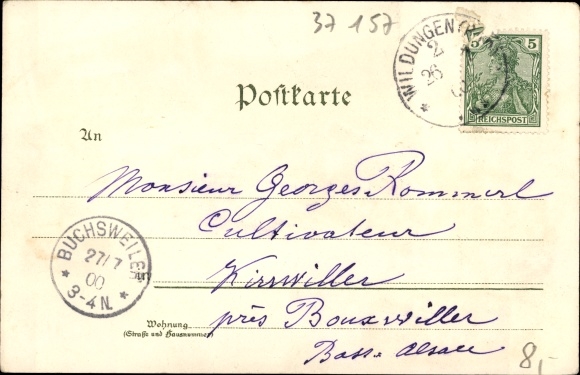 37 157
WILDUNGEN
2
26
5 5
REICHSPOST
Postkarte
An
Monsieur Georges Rommerl
Cultivateur
BUCHSWEILER
27/7
00
3-4 N.
Kirrwiller
près Bouxwiller
Wohnung
(Straße und Hausnummer)
Bass-Alsace
8,-